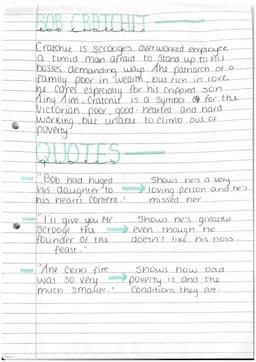 BOB CRATCHIT
bob cratchit
Cratchit is scrooges overworked employee
a timid man afraid to stand up to his
bosses demanding ways. The patriarch of a
family poor in wealth, but rich in love
he cares especially for his crippled son
Tiny Tim. Cratchit is a symbol of for the
Victorian poor, good-hearted and hard
working, but unable to climb out of
poverty.
QUOTES
quotes
"Bob had huged
his daughter to
his hearts content."
Shows he's a very
loving person and he's
missed her.
"I'll give you Mr
Scrooge the
founder of the
feast."
Shows he's greatful
even though he
doesn't like his boss.
"The clerks fire
was so very
much smaller."
Shows how bad
poverty is and the
conditions they are.